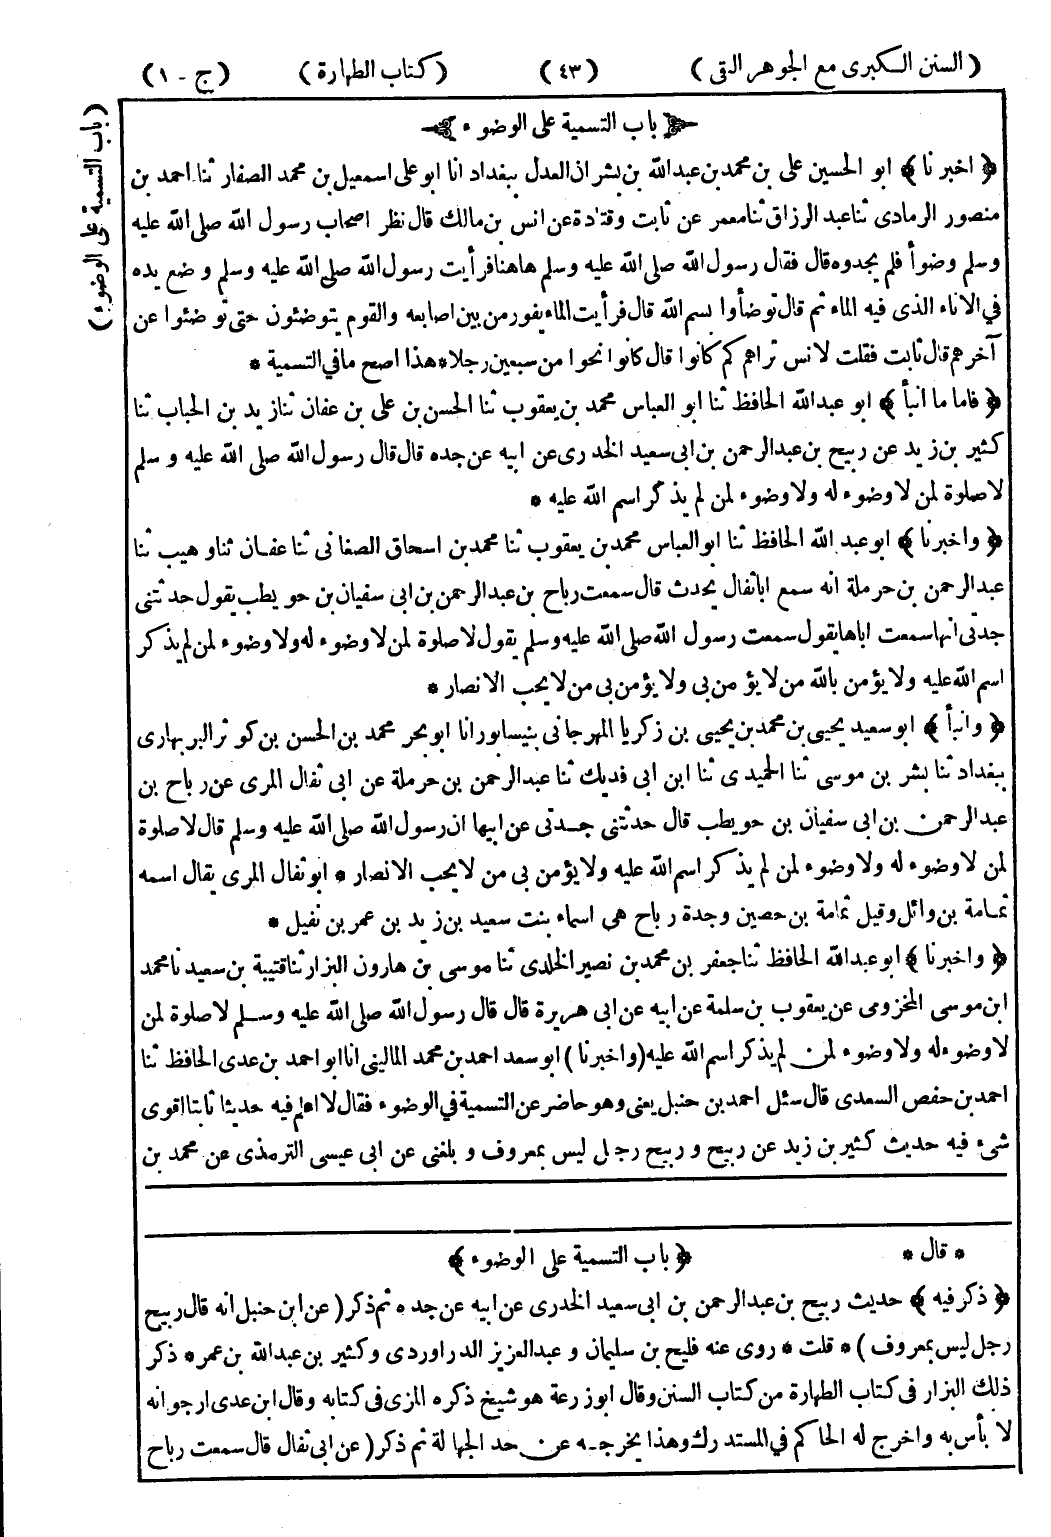 ( السنن الكبرى مع الجوهر النقى ) ( ٤٣ ) ( كتاب الطهارة ) ( ج - ١ )
( باب التسمية على الوضوء )
باب التسمية على الوضوء
﴿ اخبرنا ﴾ ابو الحسين على بن محمد بن عبدالله بن بشران العدل ببغداد انا ابو على اسمعيل بن محمد الصفار ثنا احمد بن
منصور الرمادى ثنا عبد الرزاق ثنا معمر عن ثابت وقتادة عن انس بن مالك قال نظر اصحاب رسول الله صلى الله عليه
وسلم وضوأ فلم يجدوه قال فقال رسول الله صلى الله عليه وسلم هاهنا فرأيت رسول الله صلى الله عليه وسلم وضع يده
في الاناء الذى فيه الماء ثم قال توضأوا بسم الله قال فرأيت الماء يفور من بين اصابعه والقوم يتوضئون حتى توضئوا عن
آخرهم قال ثابت فقلت لانس تراهم كم كانوا قال كانوا نحوا من سبعين رجلا * هذا اصح ما فى التسمية *
﴿ فاما ما انبأ ﴾ ابو عبدالله الحافظ ثنا ابو العباس محمد بن يعقوب ثنا الحسن بن على بن عفان ثنا زيد بن الحباب ثنا
كثير بن زيد عن ربيح بن عبدالرحمن بن ابى سعيد الخدرى عن ابيه عن جده قال قال رسول الله صلى الله عليه وسلم
لا صلوة لمن لا وضوء له ولا وضوء لمن لم يذكر اسم الله عليه *
﴿ واخبرنا ﴾ ابو عبد الله الحافظ ثنا ابو العباس محمد بن يعقوب ثنا محمد بن اسحاق الصغانى ثنا عفان ثنا وهيب ثنا
عبدالرحمن بن حرملة انه سمع اباثفال يحدث قال سمعت رباح بن عبدالرحمن بن ابى سفيان بن حويطب يقول حدثتنى
جدتى انها سمعت اباها يقول سمعت رسول الله صلى الله عليه وسلم يقول لا صلوة لمن لا وضوء له ولا وضوء لمن لم يذكر
اسم الله عليه ولا يؤمن بالله من لا يؤمن بى ولا يؤمن بى من لا يحب الانصار *
﴿ وانبأ ﴾ ابو سعيد يحيى بن محمد بن يحيى بن زكريا المهرجانى بنيسابور انا ابو بحر محمد بن الحسن بن كوثر البربهارى
ببغداد ثنا بشر بن موسى ثنا الحميدى ثنا ابن ابى فديك ثنا عبدالرحمن بن حرملة عن ابى ثفال المرى عن رباح بن
عبدالرحمن بن ابى سفيان بن حويطب قال حدثتنى جدتى عن ابيها ان رسول الله صلى الله عليه وسلم قال لا صلوة
لمن لا وضوء له ولا وضوء لمن لم يذكر اسم الله عليه ولا يؤمن بى من لا يحب الانصار * ابو ثفال المرى يقال اسمه
ثمامة بن وائل وقيل ثمامة بن حصين وجدة رباح هى اسماء بنت سعيد بن زيد بن عمر بن نفيل *
﴿ واخبرنا ﴾ ابو عبدالله الحافظ ثنا جعفر بن محمد بن نصير الخلدى ثنا موسى بن هارون البزار ثنا قتيبة بن سعيد نا محمد
ابن موسى المخزومى عن يعقوب بن سلمة عن ابيه عن ابى هريرة قال قال رسول الله صلى الله عليه وسلم لا صلوة لمن
لا وضوء له ولا وضوء لمن لم يذكر اسم الله عليه ( واخبرنا ) ابو سعد احمد بن محمد المالينى انا ابو احمد بن عدى الحافظ ثنا
احمد بن حفص السعدى قال سئل احمد بن حنبل يعنى وهو حاضر عن التسمية في الوضوء فقال لا اعلم فيه حديثا ثابتا اقوى
شىء فيه حديث كثير بن زيد عن ربيح و ربيح رجل ليس بمعروف و بلغنى عن ابى عيسى الترمذى عن محمد بن
* قال * ﴿ باب التسمية على الوضوء ﴾
﴿ ذكر فيه ﴾ حديث ربيح بن عبدالرحمن بن ابى سعيد الخدرى عن ابيه عن جده ثم ذكر ( عن ابن حنبل انه قال ربيح
رجل ليس بمعروف ) * قلت * روى عنه فليح بن سليمان و عبدالعزيز الدراوردى وكثير بن عبدالله بن عمر * ذكر
ذلك البزار فى كتاب الطهارة من كتاب السنن وقال ابوزرعة هو شيخ ذكره المزى فى كتابه وقال ابن عدى ارجو انه
لا بأس به واخرج له الحاكم في المستدرك وهذا يخرجه عن حد الجهالة ثم ذكر ( عن ابى ثفال قال سمعت رباح